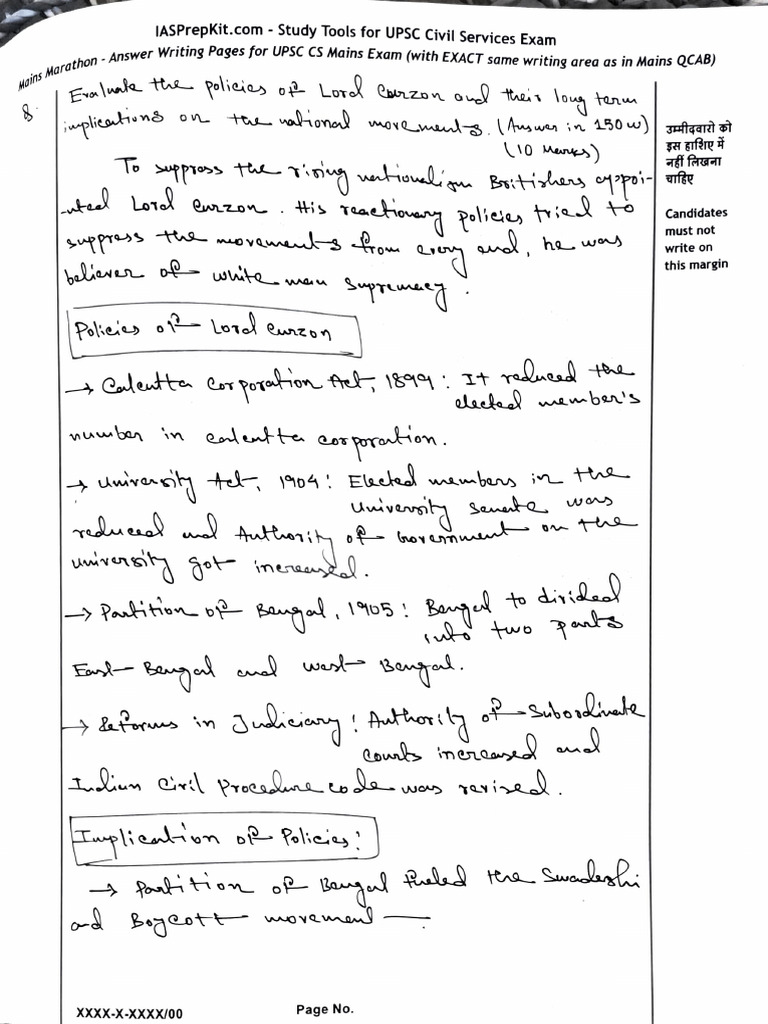 IASPrepKit.com - Study Tools for UPSC Civil Services Exam
Mains Marathon - Answer Writing Pages for UPSC CS Mains Exam (with EXACT same writing area as in Mains QCAB)
8. Evaluate the policies of Lord Curzon and their long term
implications on the national movements. (Answer in 150 w)
(10 Marks)
उम्मीदवारो को
इस हाशिए में
नहीं लिखना
चाहिए
Candidates
must not
write on
this margin
To suppress the rising nationalism Britishers appoi-
-nted Lord Curzon. His reactionary policies tried to
suppress the movements from every end, he was
believer of white man supremacy.
Policies of Lord Curzon
→ Calcutta Corporation Act, 1899: It reduced the
elected member's
number in calcutta corporation.
→ University Act, 1904: Elected members in the
University senate was
reduced and Authority of Government on the
university got increased.
→ Partition of Bengal, 1905: Bengal to divided
into two parts
East Bengal and west Bengal.
→ Reforms in Judiciary: Authority of Subordinate
courts increased and
Indian Civil Procedure code was revised.
Implication of Policies:
→ Partition of Bengal fueled the Swadeshi
and Boycott movement —
XXXX-X-XXXX/00
Page No.